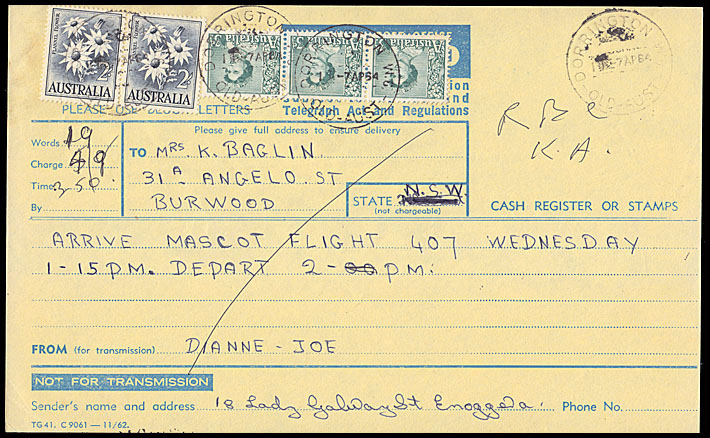 FLANNEL FLOWER FLANNEL FLOWER
2/- 2/-
AUSTRALIA AUSTRALIA
Australia Australia Australia
DORRINGTON
7AP64
QLD-AUST
DORRINGTON
-7AP64
QLD-AUST
DORRINGTON
-7AP64
QLD-AUST
PLEASE USE BLOCK LETTERS
Telegraph Act and Regulations
Words 19
Charge 9
Time 3.50
By
Please give full address to ensure delivery
TO MRS K. BAGLIN
31A ANGELO. ST
BURWOOD
STATE N.S.W.
(not chargeable)
K.A.
CASH REGISTER OR STAMPS
ARRIVE MASCOT FLIGHT 407 WEDNESDAY
1-15PM. DEPART 2-00PM.
FROM (for transmission) DIANNE - JOE
NOT FOR TRANSMISSION
Sender's name and address 18 Lady Galway St Enoggera. Phone No.
TG 41. C 9061 — 11/62.